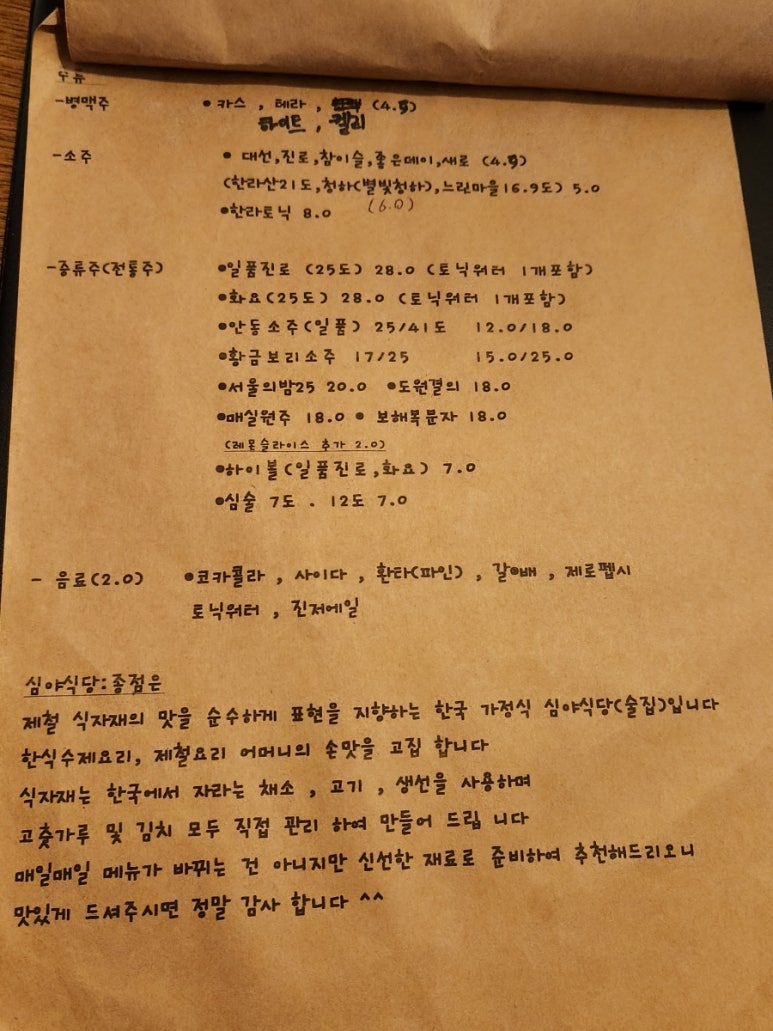 -병맥주 • 카스 , 테라 , (4.5)
하이트 , 켈리
-소주 • 대선,진로,참이슬,좋은데이,새로 (4.5)
(한라산21도,청하(별빛청하),느린마을16.9도) 5.0
•한라토닉 8.0 (6.0)
-증류주(전통주) •일품진로 (25도) 28.0 (토닉워터 1개포함)
•화요(25도) 28.0 (토닉워터 1개포함)
•안동소주(일품) 25/41도 12.0/18.0
•황금보리소주 17/25 15.0/25.0
•서울의밤25 20.0 •도원결의 18.0
•매실원주 18.0 • 보해복분자 18.0
(레몬슬라이스 추가 2.0)
•하이볼(일품진로,화요) 7.0
•심술 7도 . 12도 7.0
- 음료(2.0) •코카콜라 , 사이다 , 환타(파인) , 갈아배 , 제로펩시
토닉워터 , 진저에일
심야식당:종점은
제철 식자재의 맛을 순수하게 표현을 지향하는 한국 가정식 심야식당(술집)입니다
한식수제요리, 제철요리 어머니의 손맛을 고집 합니다
식자재는 한국에서 자라는 채소 , 고기 , 생선을 사용하며
고춧가루 및 김치 모두 직접 관리 하여 만들어 드립 니다
매일매일 메뉴가 바뀌는 건 아니지만 신선한 재료로 준비하여 추천해드리오니
맛있게 드셔주시면 정말 감사 합니다 ^^